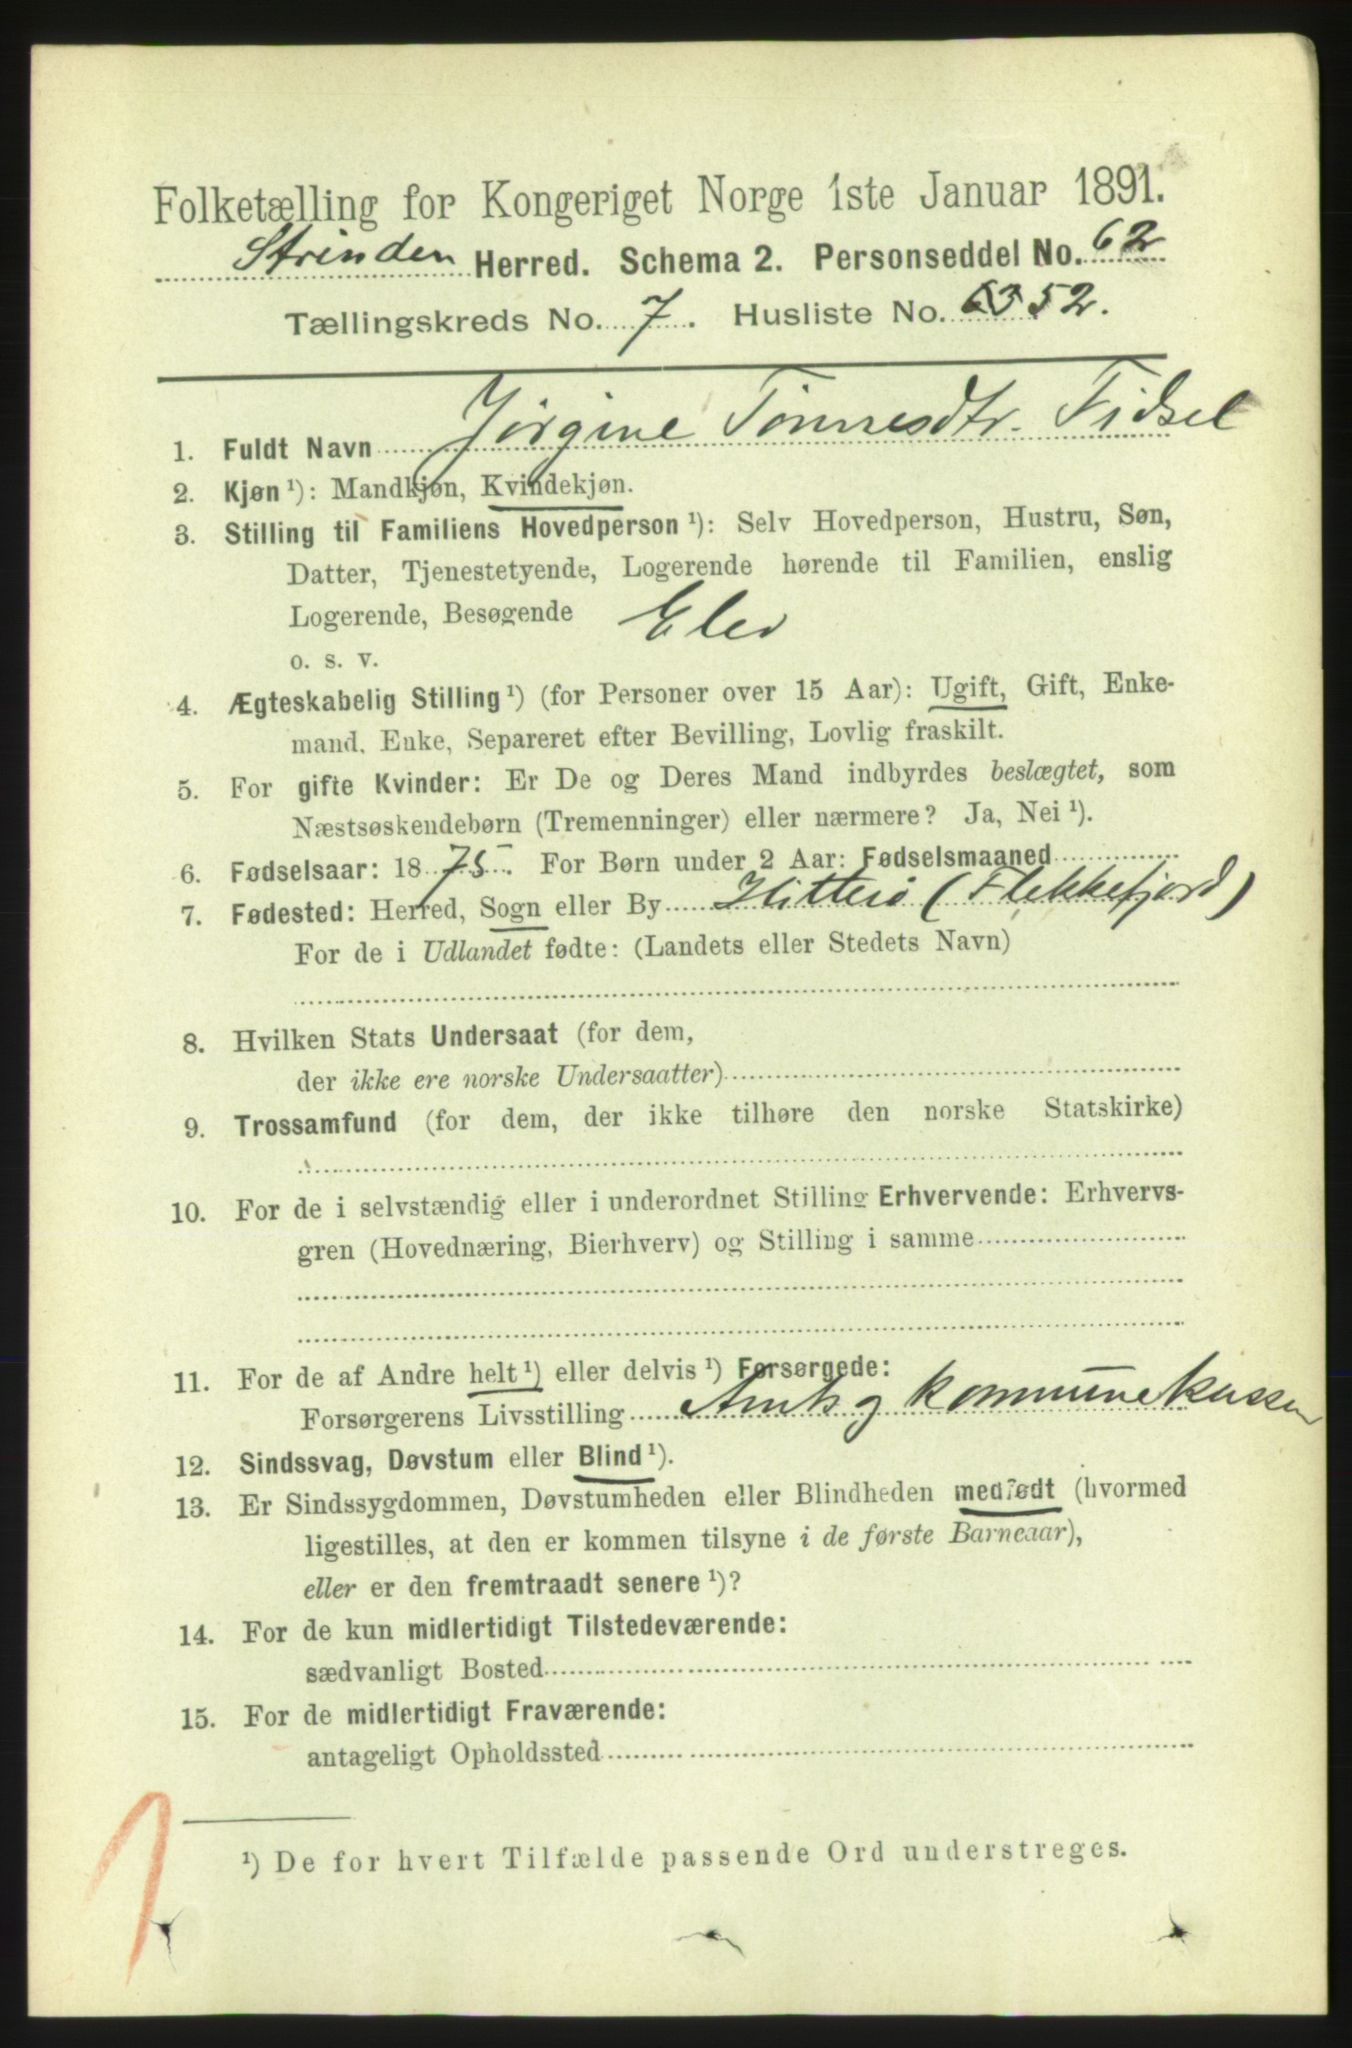 Folketælling for Kongeriget Norge 1ste Januar 1891.
Strinden Herred. Schema 2. Personseddel No. 62
Tællingskreds No. 7. Husliste No. 63 52.
1. Fuldt Navn Jörgine Tönnesdtr. Fidsel
2. Kjøn ¹): Mandkjøn, Kvindekjøn.
3. Stilling til Familiens Hovedperson ¹): Selv Hovedperson, Hustru, Søn,
Datter, Tjenestetyende, Logerende hørende til Familien, enslig
Logerende, Besøgende Elev
o. s. v.
4. Ægteskabelig Stilling ¹) (for Personer over 15 Aar): Ugift, Gift, Enke-
mand, Enke, Separeret efter Bevilling, Lovlig fraskilt.
5. For gifte Kvinder: Er De og Deres Mand indbyrdes beslægtet, som
Næstsøskendebørn (Tremenninger) eller nærmere? Ja, Nei ¹).
6. Fødselsaar: 1875. For Børn under 2 Aar: Fødselsmaaned
7. Fødested: Herred, Sogn eller By Hitterö (Flekkefjord)
For de i Udlandet fødte: (Landets eller Stedets Navn)
8. Hvilken Stats Undersaat (for dem,
der ikke ere norske Undersaatter)
9. Trossamfund (for dem, der ikke tilhøre den norske Statskirke)
10. For de i selvstændig eller i underordnet Stilling Erhvervende: Erhvervs-
gren (Hovednæring, Bierhverv) og Stilling i samme
11. For de af Andre helt ¹) eller delvis ¹) Forsørgede:
Forsørgerens Livsstilling Amts og kommunekassen
12. Sindssvag, Døvstum eller Blind ¹).
13. Er Sindssygdommen, Døvstumheden eller Blindheden medfødt (hvormed
ligestilles, at den er kommen tilsyne i de første Barneaar),
eller er den fremtraadt senere ¹)?
14. For de kun midlertidigt Tilstedeværende:
sædvanligt Bosted
15. For de midlertidigt Fraværende:
antageligt Opholdssted
¹) De for hvert Tilfælde passende Ord understreges.
1